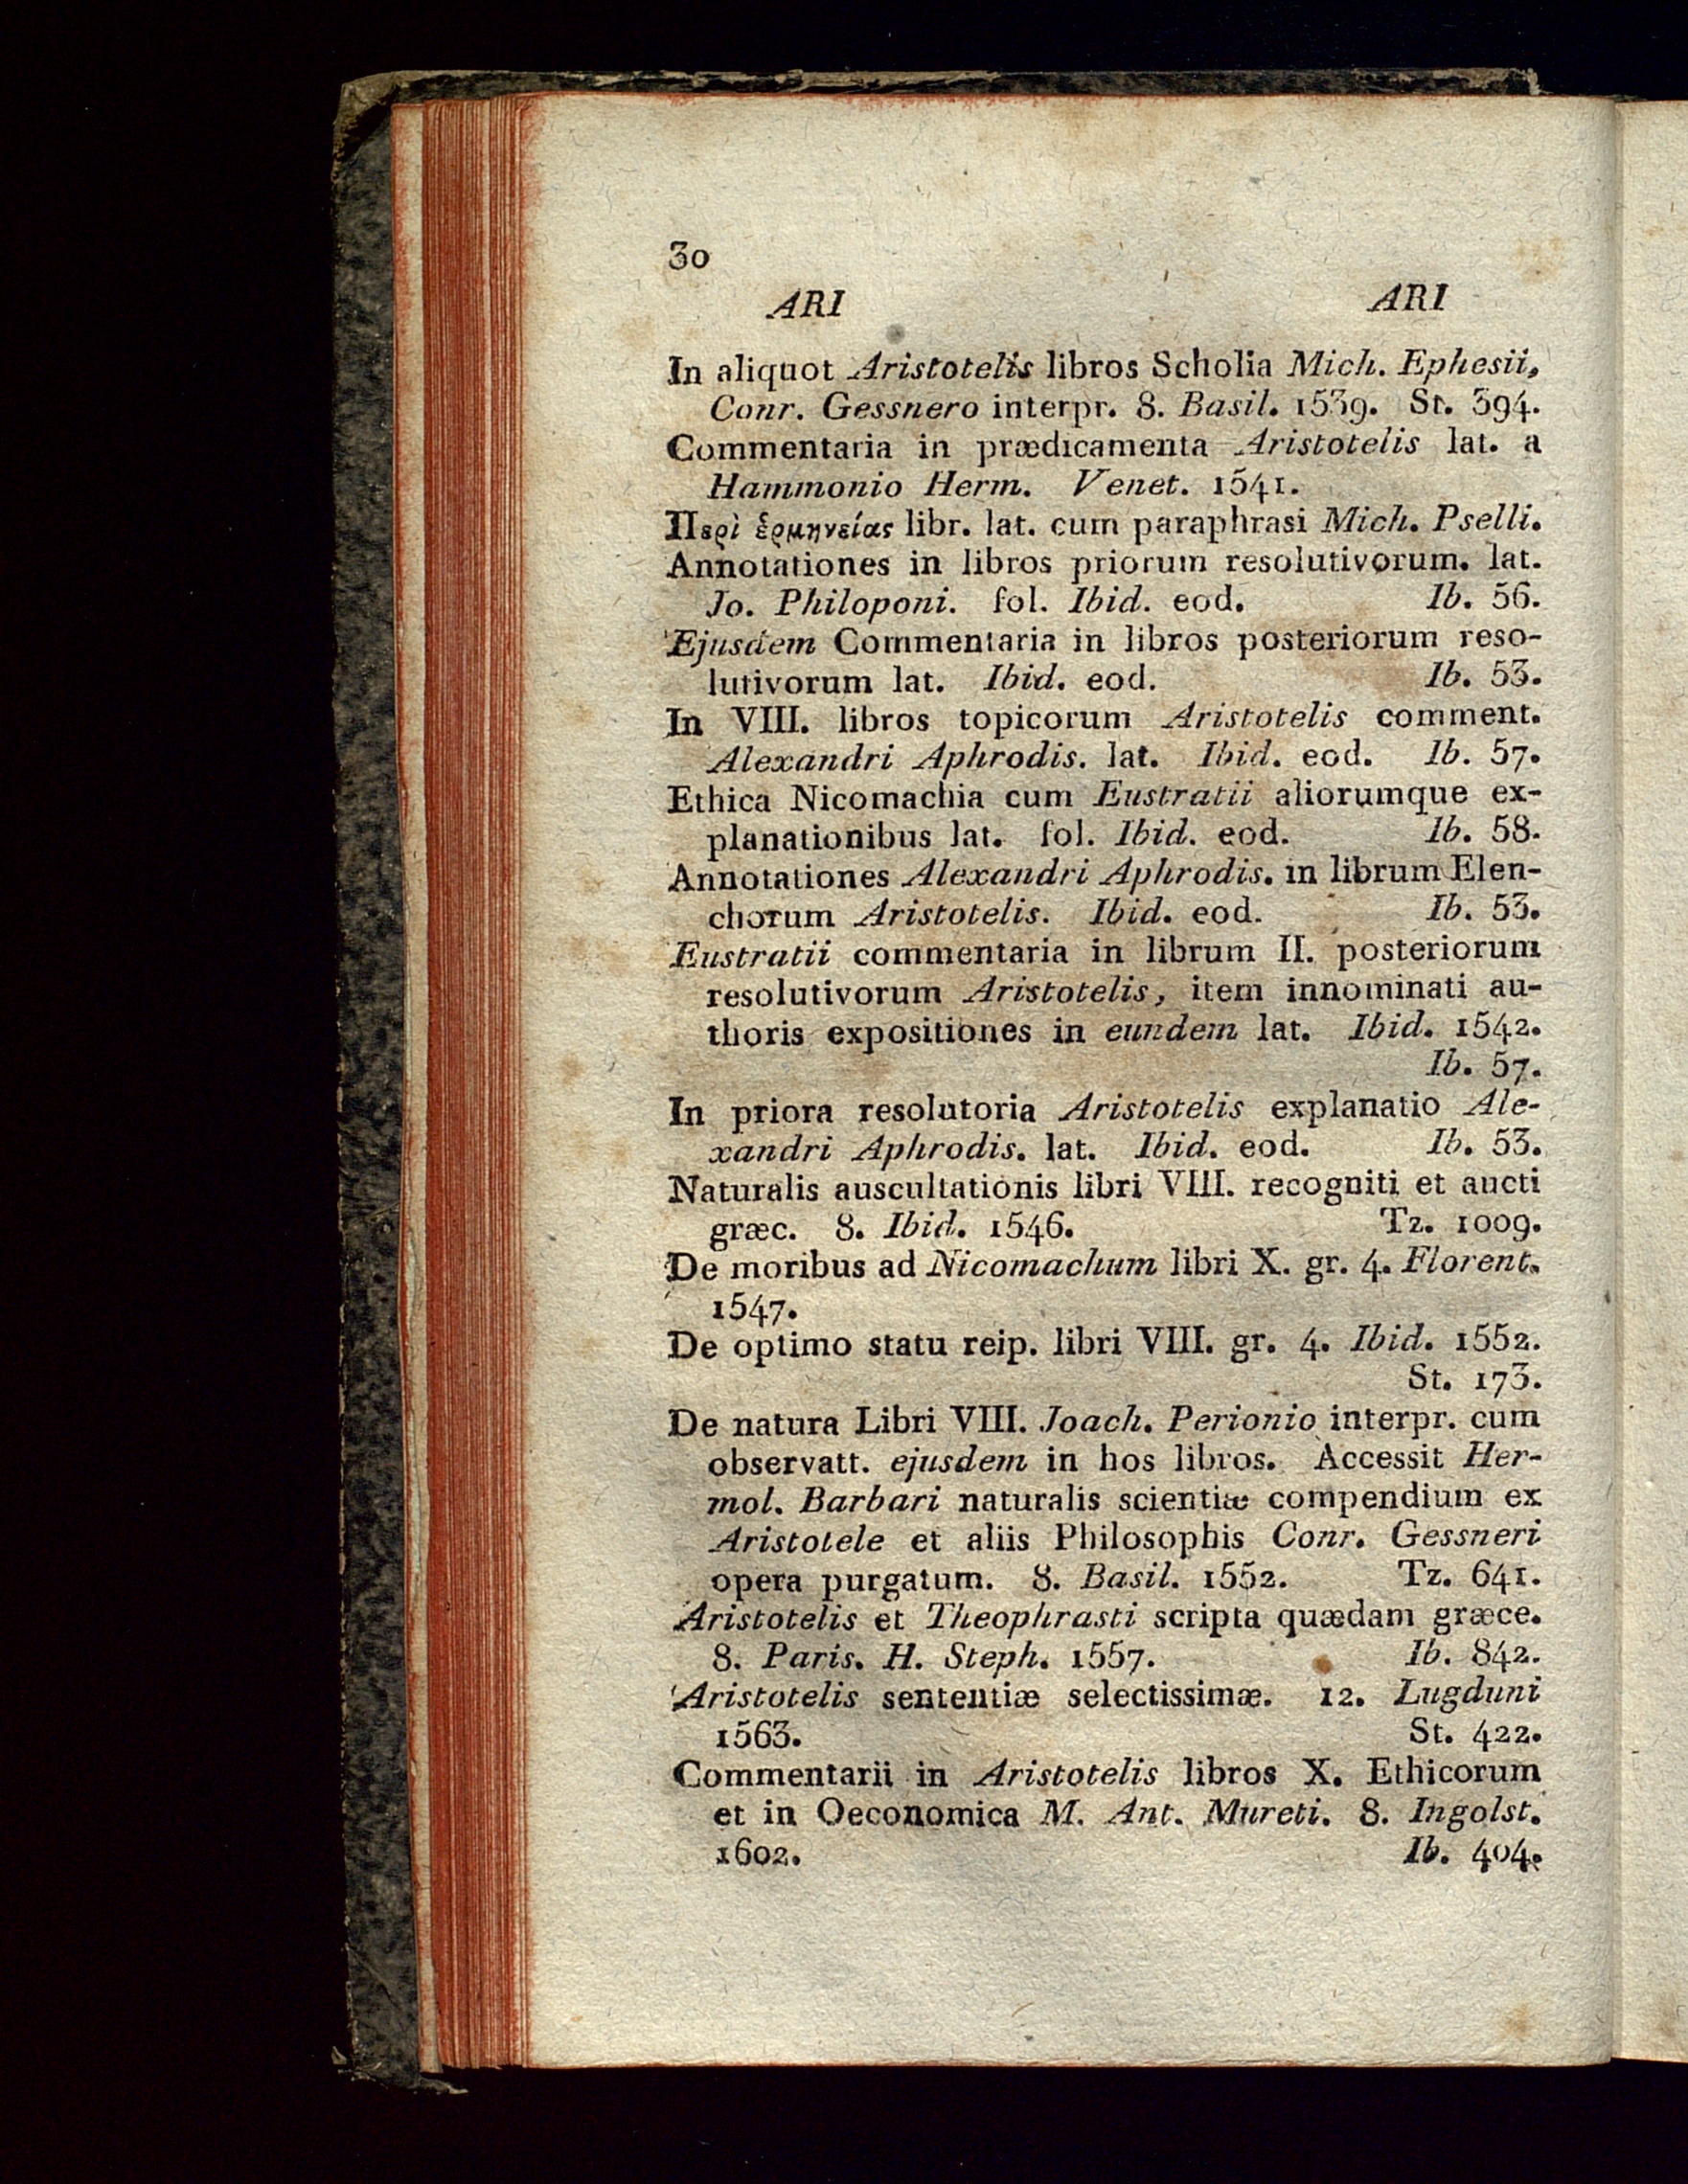 30
ARI ARI
In aliquot Aristotelis libros Scholia Mich. Ephesii,
Conr. Gessnero interpr. 8. Basil. 1539. St. 394.
Commentaria in prædicamenta Aristotelis lat. a
Hammonio Herm. Venet. 1541.
Περὶ ἑρμηνείας libr. lat. cum paraphrasi Mich. Pselli.
Annotationes in libros priorum resolutivorum. lat.
Jo. Philoponi. fol. Ibid. eod. Ib. 56.
Ejusdem Commentaria in libros posteriorum reso-
lutivorum lat. Ibid. eod. Ib. 53.
In VIII. libros topicorum Aristotelis comment.
Alexandri Aphrodis. lat. Ibid. eod. Ib. 57.
Ethica Nicomachia cum Eustratii aliorumque ex-
planationibus lat. fol. Ibid. eod. Ib. 58.
Annotationes Alexandri Aphrodis. in librum Elen-
chorum Aristotelis. Ibid. eod. Ib. 53.
Eustratii commentaria in librum II. posteriorum
resolutivorum Aristotelis, item innominati au-
thoris expositiones in eundem lat. Ibid. 1542.
Ib. 57.
In priora resolutoria Aristotelis explanatio Ale-
xandri Aphrodis. lat. Ibid. eod. Ib. 53.
Naturalis auscultationis libri VIII. recogniti et aucti
græc. 8. Ibid. 1546. Tz. 1009.
De moribus ad Nicomachum libri X. gr. 4. Florent.
1547.
De optimo statu reip. libri VIII. gr. 4. Ibid. 1552.
St. 173.
De natura Libri VIII. Joach. Perionio interpr. cum
observatt. ejusdem in hos libros. Accessit Her-
mol. Barbari naturalis scientiæ compendium ex
Aristotele et aliis Philosophis Conr. Gessneri
opera purgatum. 8. Basil. 1552. Tz. 641.
Aristotelis et Theophrasti scripta quædam græce.
8. Paris. H. Steph. 1557. Ib. 842.
Aristotelis sententiæ selectissimæ. 12. Lugduni
1563. St. 422.
Commentarii in Aristotelis libros X. Ethicorum
et in Oeconomica M. Ant. Mureti. 8. Ingolst.
1602. Ib. 404.